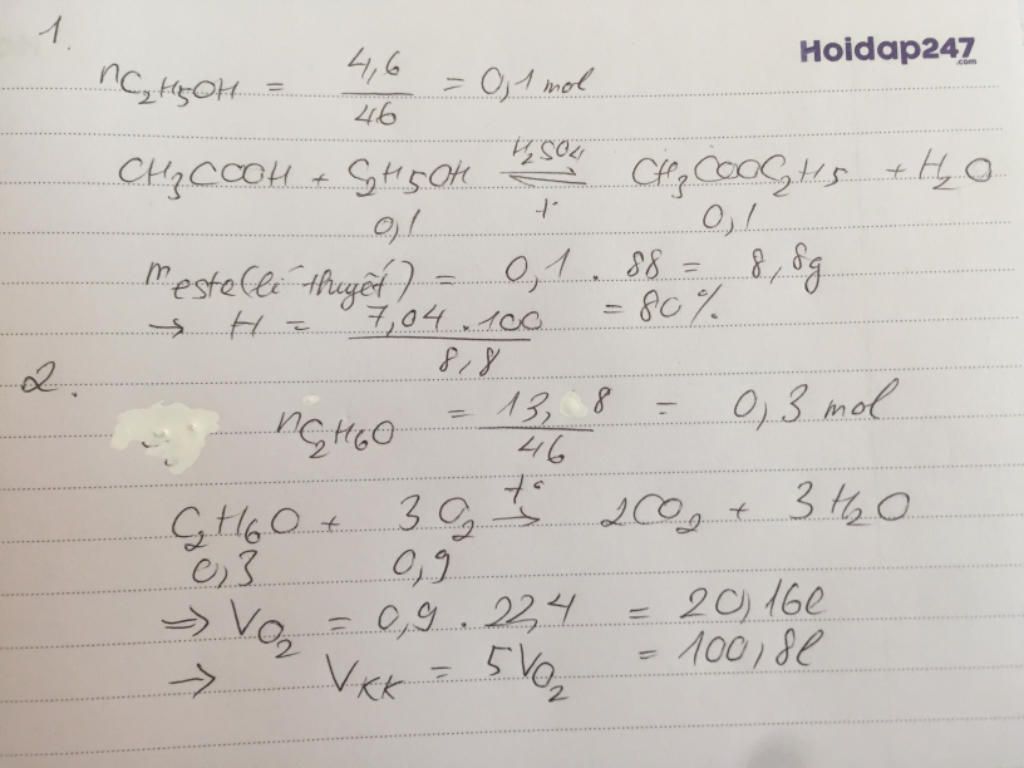 1.
Hoidap247
.com
nC₂H₅OH = 4,6/46 = 0,1 mol
CH₃COOH + C₂H₅OH ⇌ CH₃COOC₂H₅ + H₂O
H₂SO₄
t°
0,1 0,1
m este (lí thuyết) = 0,1 . 88 = 8,8g
→ H = 7,04 . 100/8,8 = 80%.
2.
nC₂H₆O = 13,8/46 = 0,3 mol
C₂H₆O + 3O₂ t°→ 2CO₂ + 3H₂O
0,3 0,9
⇒ VO₂ = 0,9 . 22,4 = 20,16l
→ VKK = 5VO₂ = 100,8l